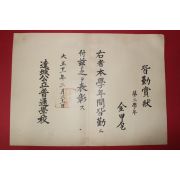 皆勤賞狀
第二學年
金甲色
右者本學年間皆勤ニ
付玆ニ之ヲ表彰ス
大正十一年三月二十日
達城公立普通學校